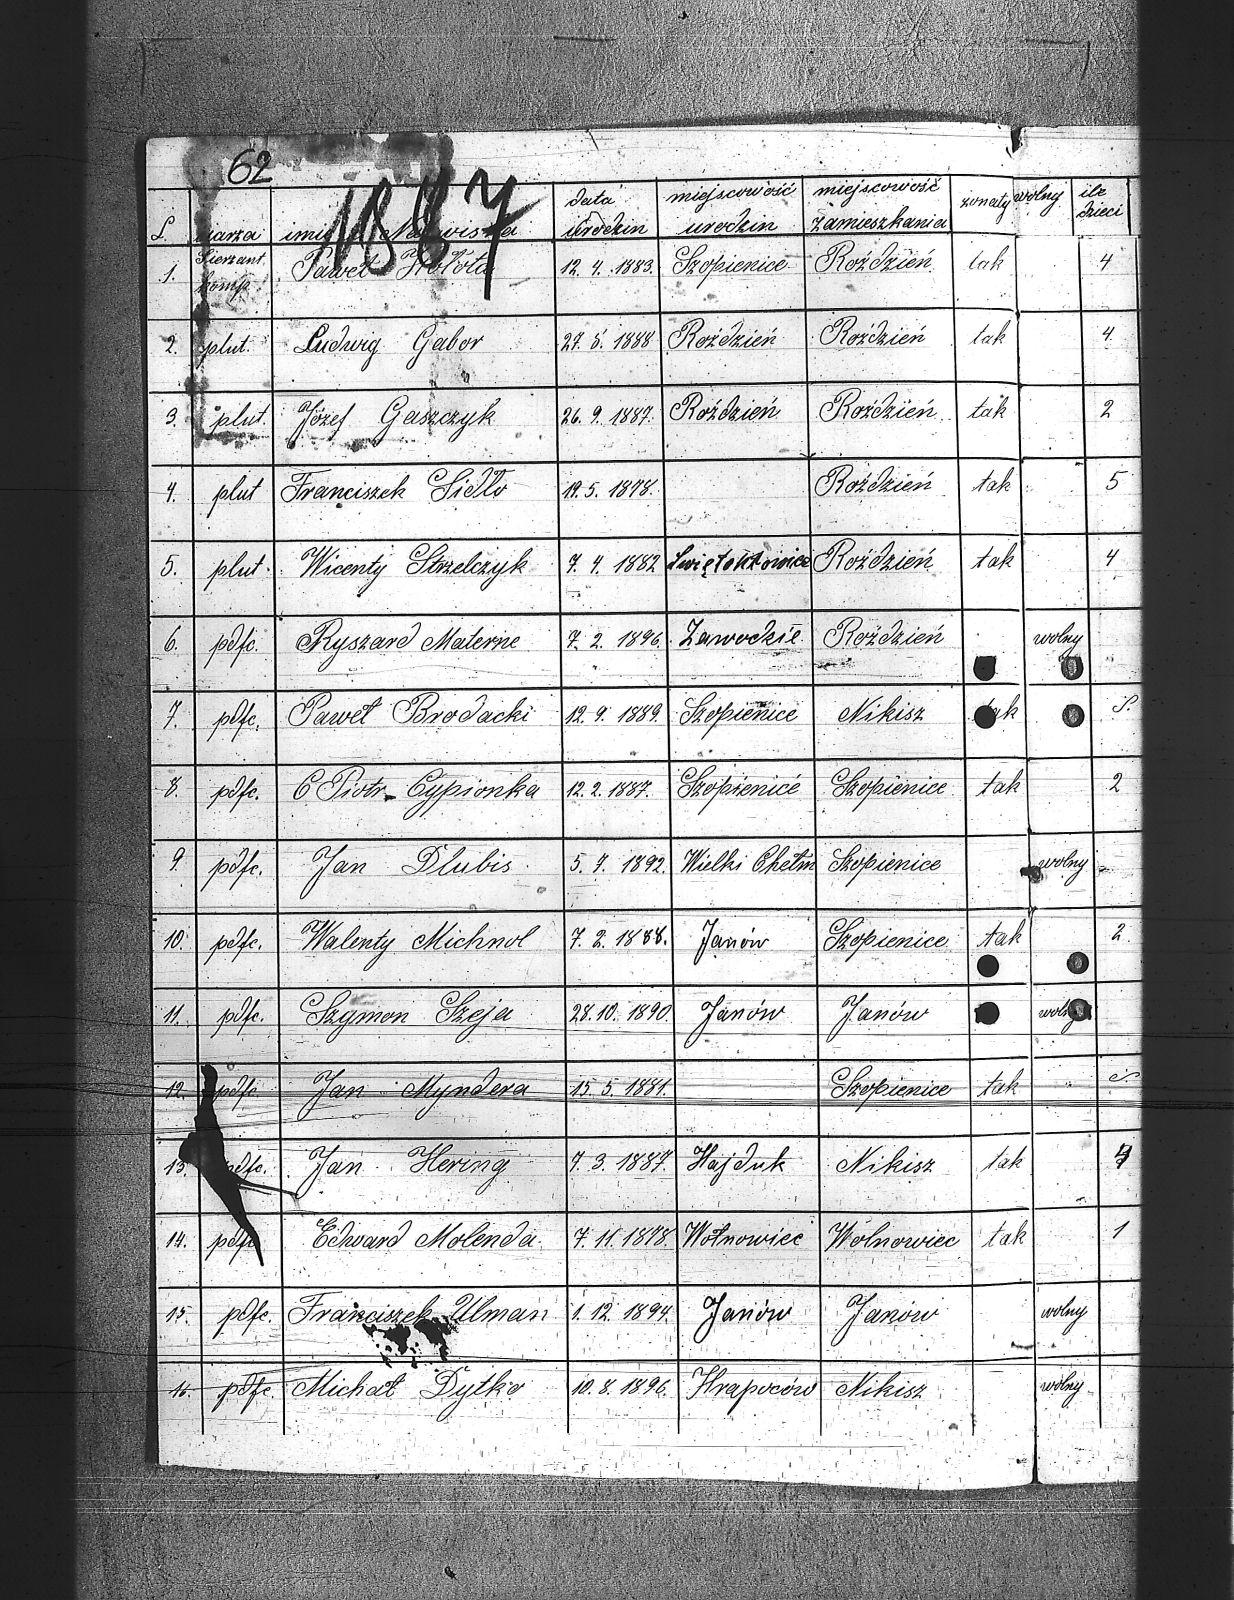 62
1887
L. szarza imię i Nazwiska data urodzin miejscowość urodzin miejscowość zamieszkania żonaty wolny ile dzieci
1. Sierzant komp. Paweł 12. 4. 1883. Szopienice Roździeń tak 4
2. plut. Ludwig Gabor 27. 5. 1888 Roździeń Roździeń tak 4
3. plut. Józef Gaszczyk 26. 9. 1887. Roździeń Roździeń tak 2
4. plut Franciszek Sidło 19. 5. 1878. Roździeń tak 5
5. plut. Wicenty Strzelczyk 7. 4. 1882 Świętochłowice Roździeń tak 4
6. pdfc. Ryszard Materne 7. 2. 1896. Zawodzie Roździeń wolny
7. pdfc. Paweł Brodacki 12. 9. 1889. Szopienice Nikisz tak
8. pdfc. Piotr Cypionka 12. 2. 1887. Szopienice Szopienice tak 2
9. pdfc. Jan Dlubis 5. 7. 1892. Wielki Chełm Szopienice wolny
10. pdfc. Walenty Michnol 7. 2. 1888. Janów Szopienice tak 2
11. pdfc. Szymon Szeja 28. 10. 1890 Janów Janów wolny
12. pdfc. Jan Myndera 15. 5. 1881. Szopienice tak
13 pdfc. Jan Hering 7. 3. 1887. Hajduk Nikisz tak 4
14. pdfc Edward Molenda 7. 11. 1878. Wołnowiec Wołnowiec tak 1
15. pdfc. Franciszek Ulman 1. 12. 1894. Janów Janów wolny
16. pdfc Michał Dytko 10. 8. 1896. Hrapoców Nikisz wolny